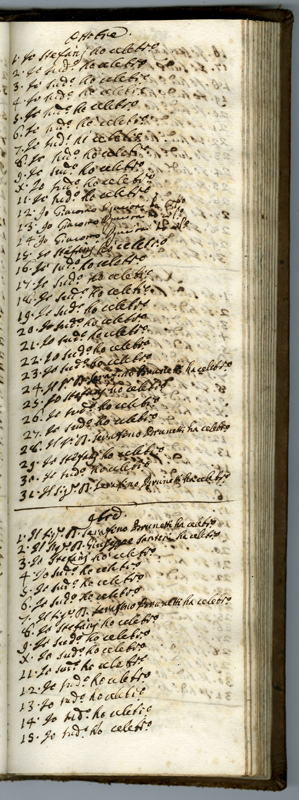 8bre.
1. Io Stefanj ho celebro
2. Io sudo. ho celebro
3. Io sudo. ho celebro
4. Io sudo. ho celebro
5. Io sudo. ho celebro
6. Io sudo. ho celebro
7. Io sudo. ho celebro
8. Io sudo. ho celebro
9. Io sudo. ho celebro
X. Io sudo. ho celebro
11. Io sudo. ho celebro
12. Io Giacomo
13. Io Giacomo
14. Io Giacomo
15. Io Stefanj ho celebro
16. Io sudo. ho celebro
17. Io sudo. ho celebro
18. Io sudo. ho celebro
19. Io sudo. ho celebro
20. Io sudo. ho celebro
21. Io sudo. ho celebro
22. Io sudo ho celebro
23. Io sudo. ho celebro
24. Il Brunetti ha celebro
25. Io Stefanj ho celebro
26. Io sudo. ho celebro
27. Io sudo. ho celebro
28. Il R. Serafino Brunetti ha celebro
29. Io Stefanj ho celebro
30. Io sudo. ho celebro
31. Il Sigr. R. Serafino Brunetti ha celebro
9bre.
1. Il Sigr. R. Serafino Brunetti ha celebro
2. Il Sigr. R. Giuseppe Santini ha celebro
3. Io Stefanj ho celebro
4. Io sudo. ho celebro
5. Io sudo. ho celebro
6. Io sudo ho celebro
7. Il Sigr. R. Serafino Brunetti ha celebro
8. Io Stefanj ho celebro
9. Io sudo. ho celebro
X. Io sudo. ho celebro
11. Io sudo. ho celebro
12. Io sudo. ho celebro
13. Io sudo. ho celebro
14. Io sudo. ho celebro
15. Io sudo. ho celebro